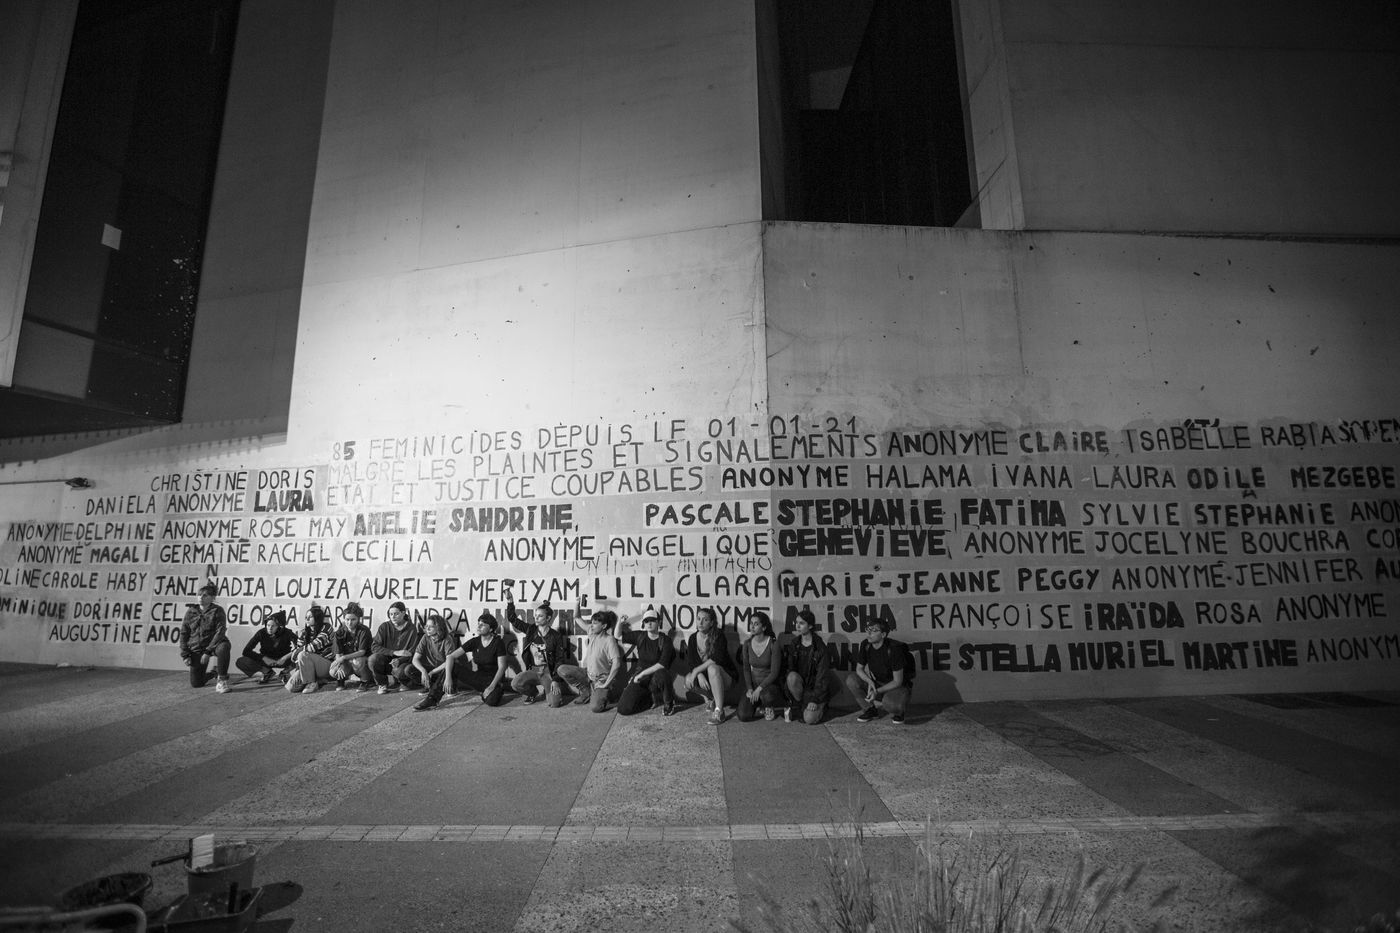 85 FEMINICIDES DEPUIS LE 01-01-21
MALGRÉ LES PLAINTES ET SIGNALEMENTS ANONYME CLAIRE ISABELLE RABIA
CHRISTINE DORIS ETAT ET JUSTICE COUPABLES ANONYME HALAMA IVANA LAURA ODILE MEZGEBE
DANIELA ANONYME LAURA
ANONYME-DELPHINE ANONYME ROSE MAY AMELIE SANDRINE PASCALE STEPHANIE FATIMA SYLVIE STEPHANIE
ANONYME MAGALI GERMAINE RACHEL CECILIA ANONYME ANGELIQUE GENEVIEVE ANONYME JOCELYNE BOUCHRA
CAROLE HABY NADIA LOUIZA AURELIE MERIYAM LILI CLARA MARIE-JEANNE PEGGY ANONYME-JENNIFER
DORIANE GLORIA ANONYME ALISHA FRANÇOISE IRAÏDA ROSA ANONYME
AUGUSTINE STELLA MURIEL MARTINE ANONYM